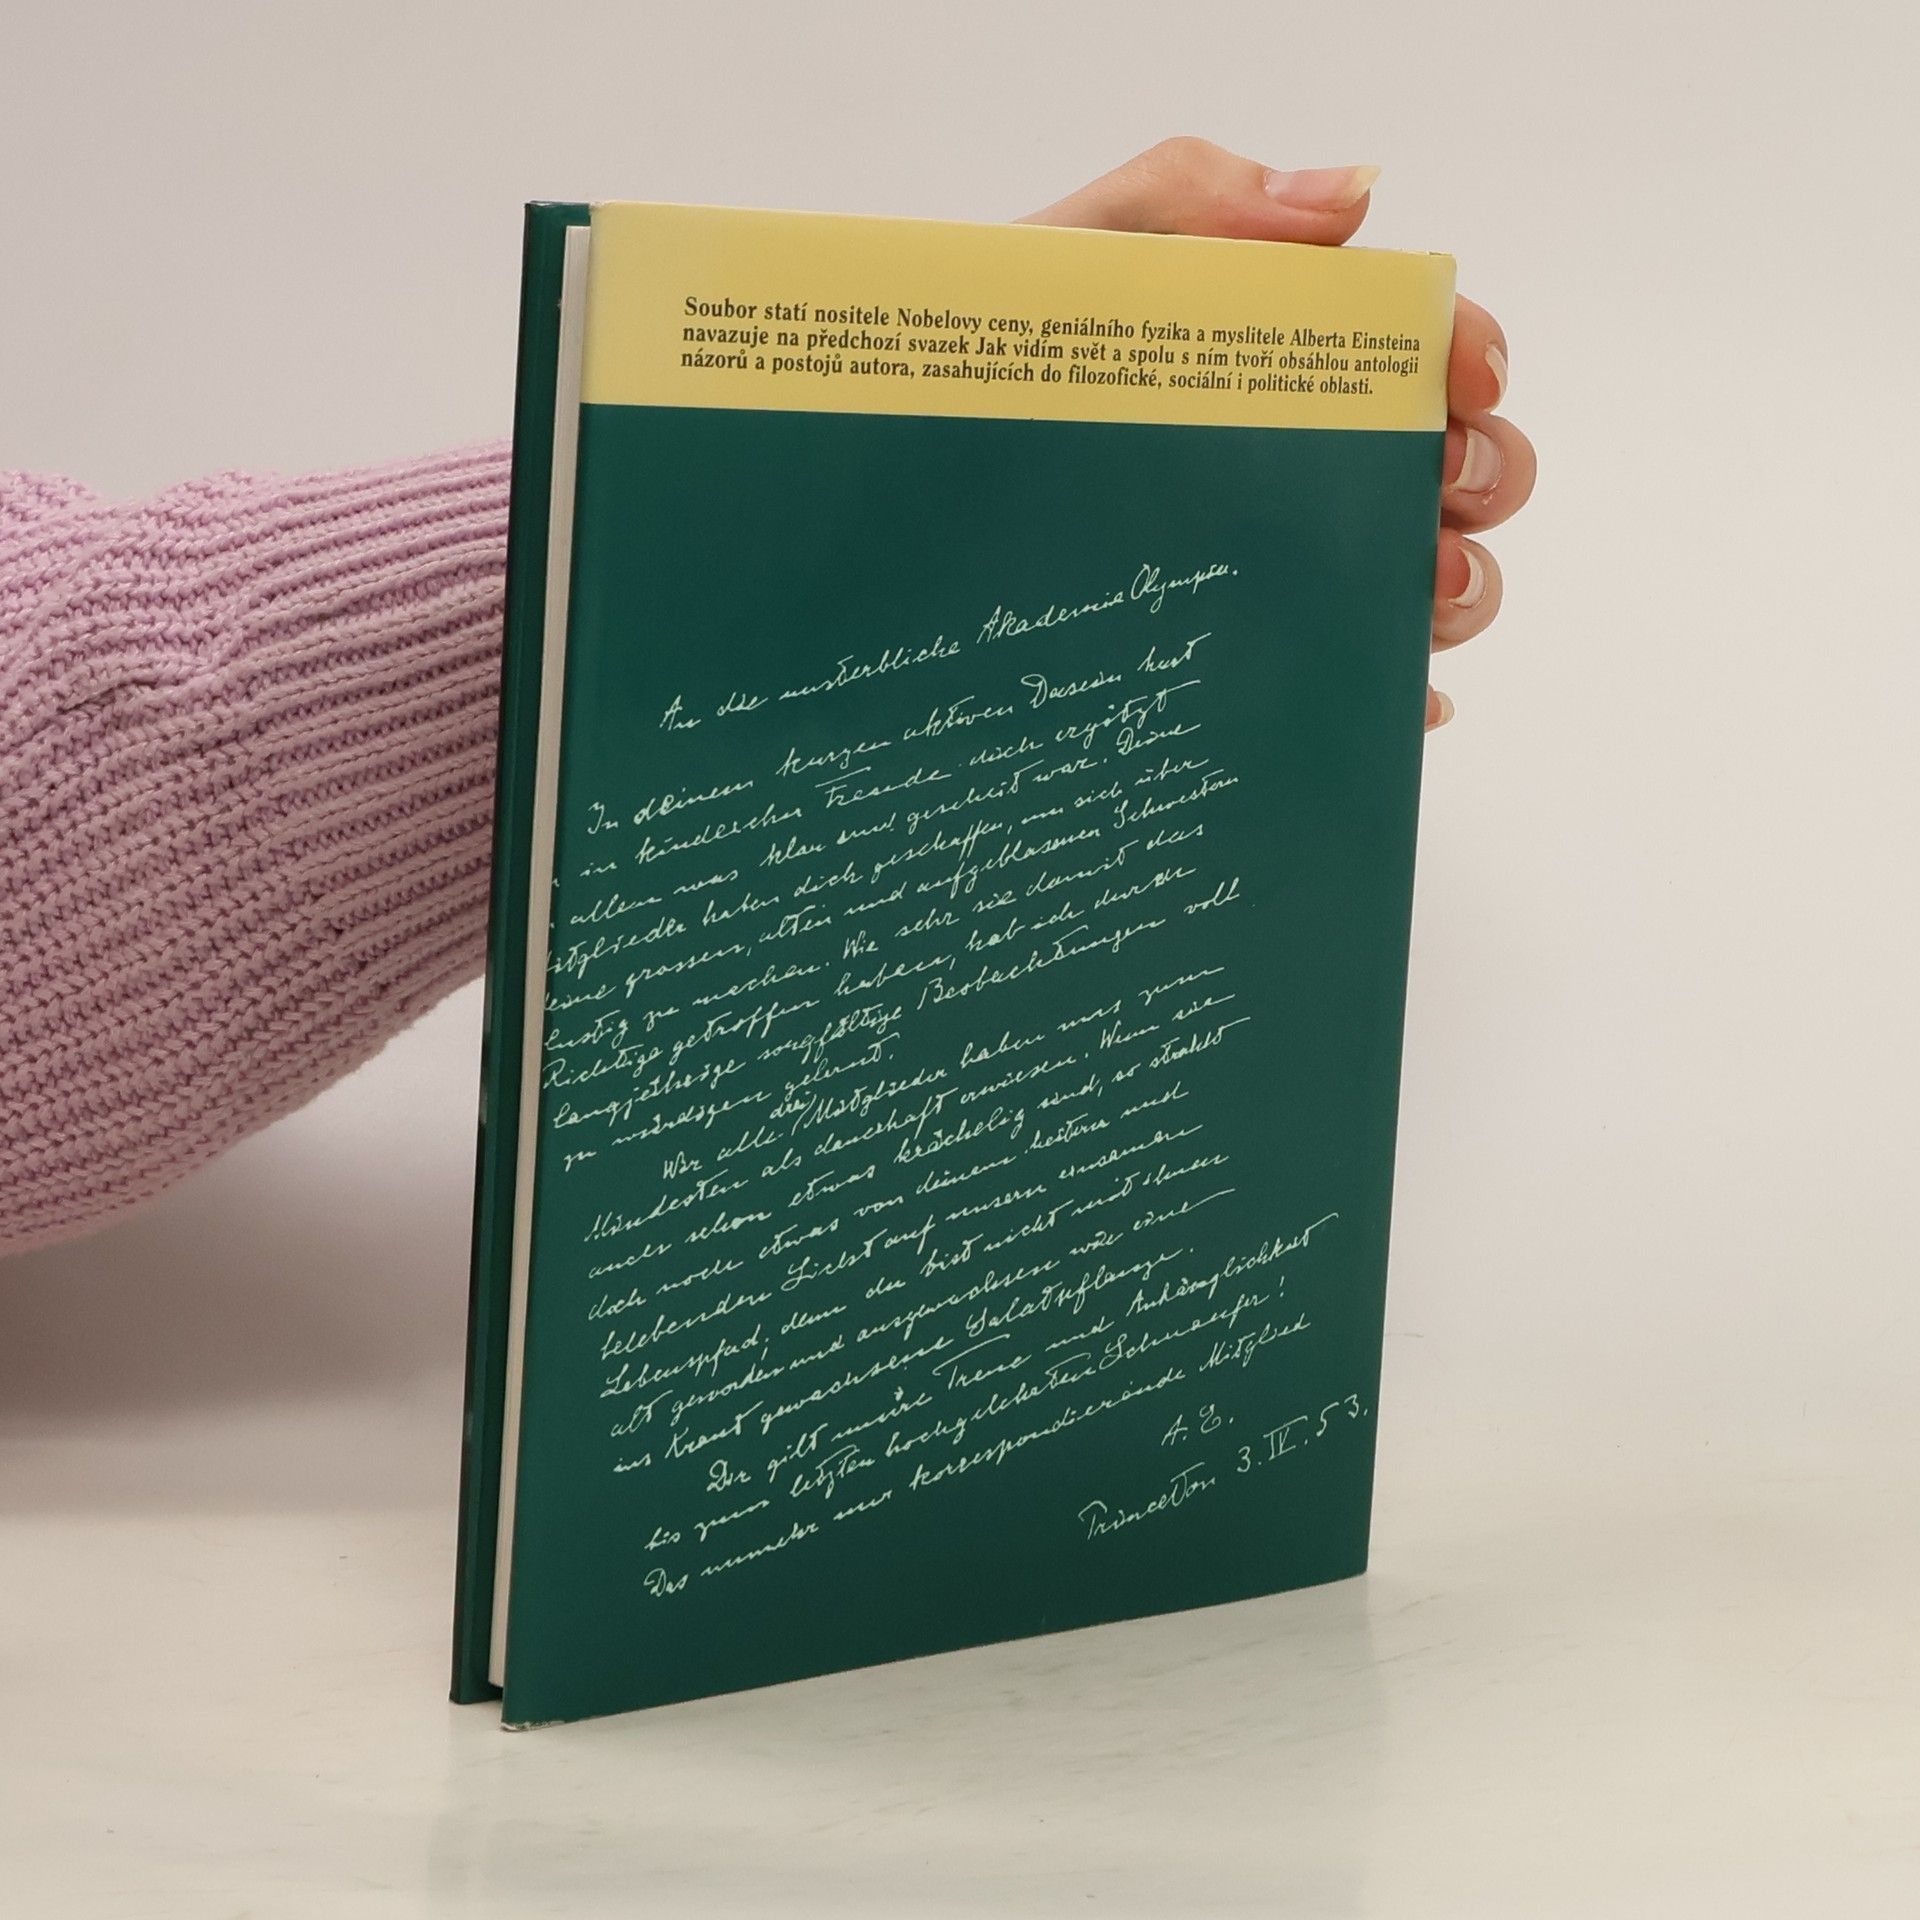 Soubor statí nositele Nobelovy ceny, geniálního fyzika a myslitele Alberta Einsteina
navazuje na předchozí svazek Jak vidím svět a spolu s ním tvoří obsáhlou antologii
názorů a postojů autora, zasahujících do filozofické, sociální i politické oblasti.
An die unsterbliche Akademie Olympia.
In deinem kurzen aktiven Dasein hast
in kindischer Freude dich ergötzt
allem was klar und gescheit war. Deine
itglieder haben dich geschaffen, um sich über
eine grossen, alten und aufgeblasenen Schwestern
lustig zu machen. Wie sehr sie damit das
Richtige getroffen haben, hab ich durch
langjährige sorgfältige Beobachtungen voll
zu würdigen gelernt.
Wir alle drei Mitglieder haben uns zum
Mindesten als dauerhaft erwiesen. Wenn sie
auch schon etwas krächelig sind, so strahlt
doch noch etwas von deinem heitern und
belebenden Licht auf unsern einsamen
Lebenspfad; denn du bist nicht mit ihnen
alt geworden und ausgewachsen wie eine
ins Kraut gewachsene Salatpflanze.
Dir gilt unsere Treue und Anhänglichkeit
bis zum letzten hochgelehrten Schnaufer!
Das nunmehr nur korrespondierende Mitglied
A. E.
Princeton 3. IV. 53.